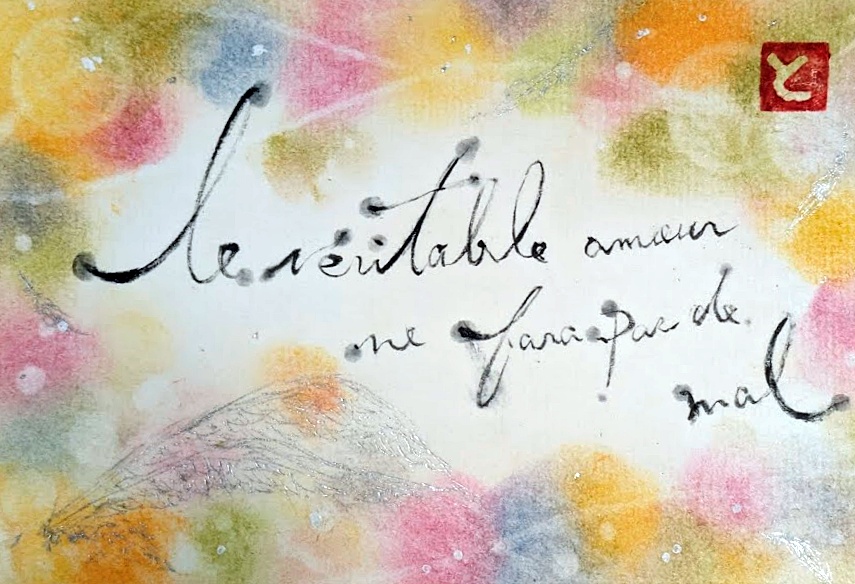 と
le véritable amour
ne fara pas de
mal